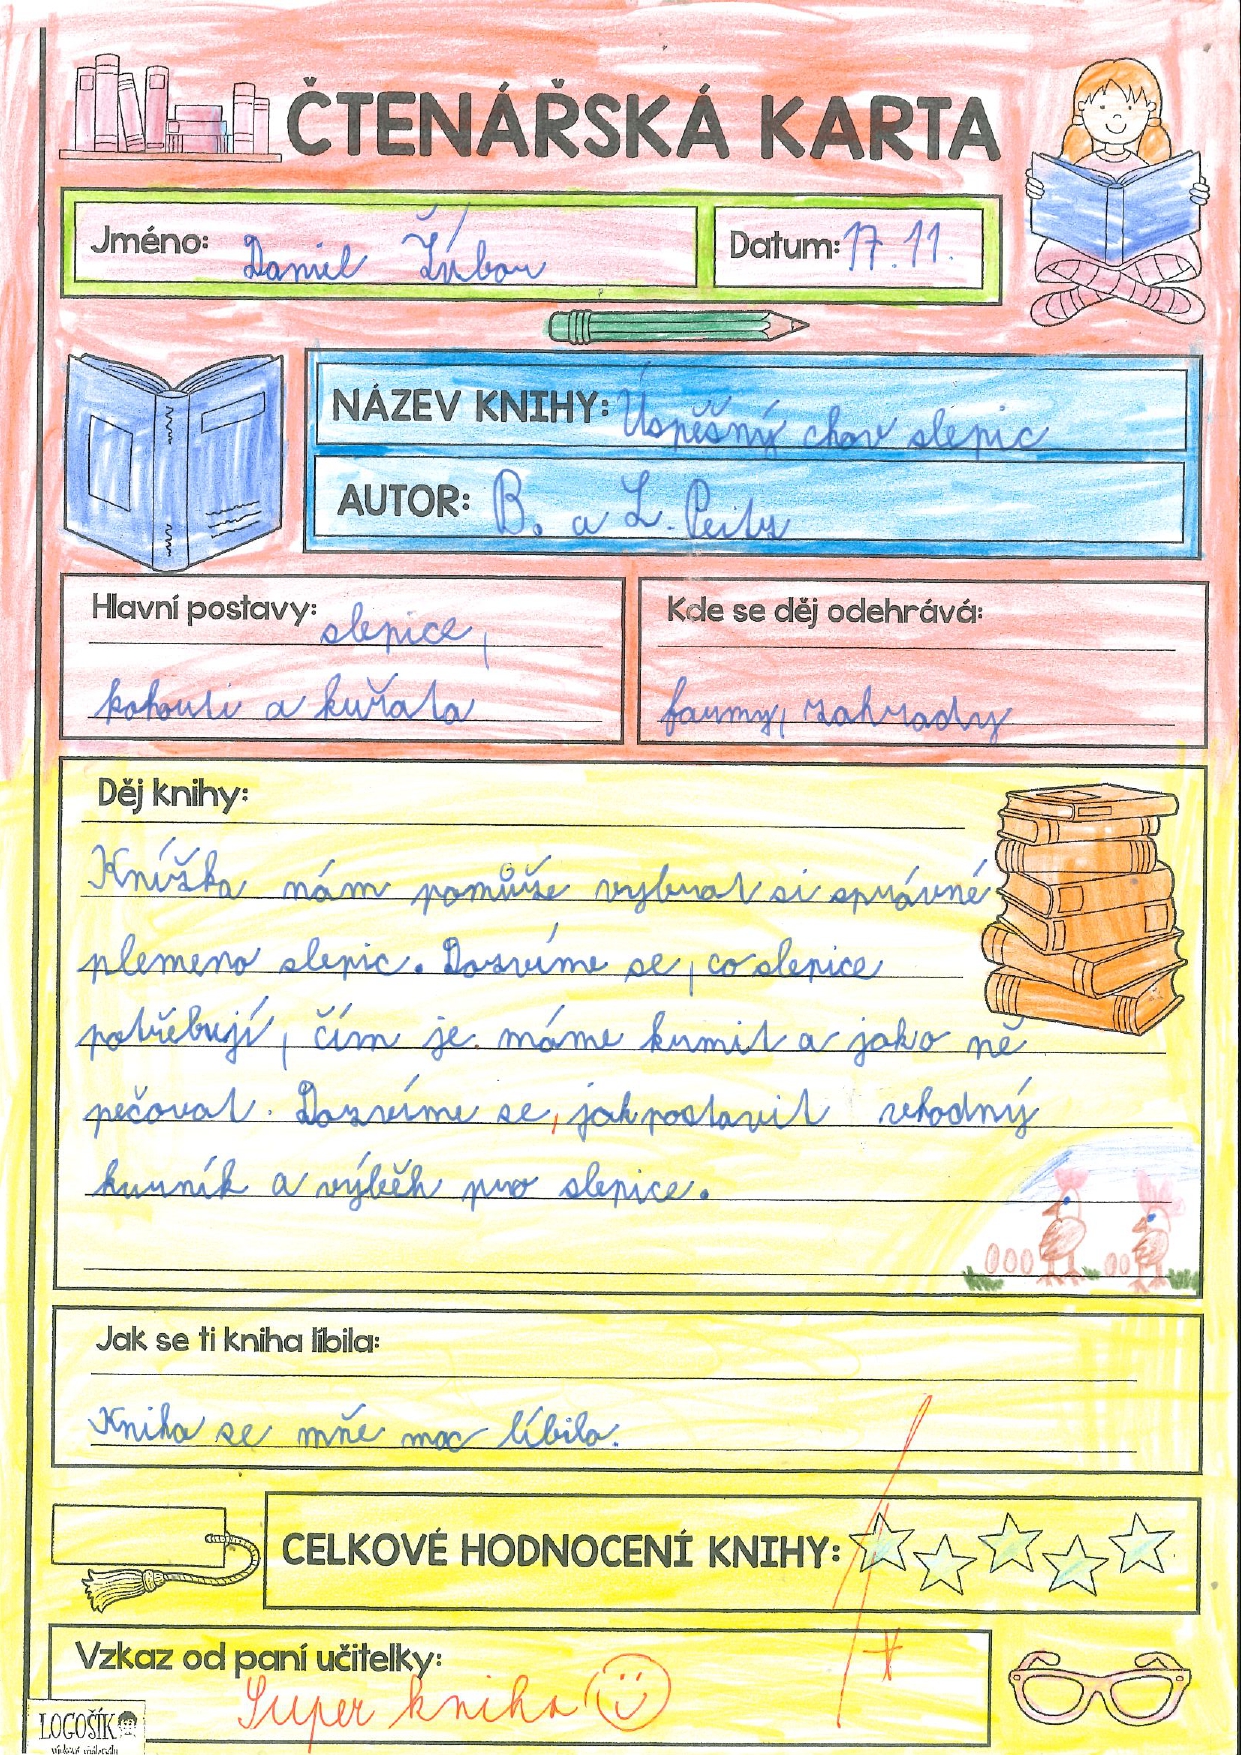 ČTENÁŘSKÁ KARTA
Jméno: Daniel Žúbor
Datum: 17.11.
NÁZEV KNIHY: Úspěšný chov slepic
AUTOR: B. a L. Peitz
Hlavní postavy: slepice,
kohouti a kuřata
Kde se děj odehrává:
farmy, zahrady
Děj knihy:
Knížka nám pomůže vybrat si správné
plemeno slepic. Dozvíme se, co slepice
potřebují, čím je máme krmit a jako ně
pečovat. Dozvíme se, jak postavit vhodný
kurník a výběh pro slepice.
Jak se ti kniha líbila:
Kniha se mňe moc líbila.
CELKOVÉ HODNOCENÍ KNIHY:
Vzkaz od paní učitelky:
Super kniha
LOGOŠÍK